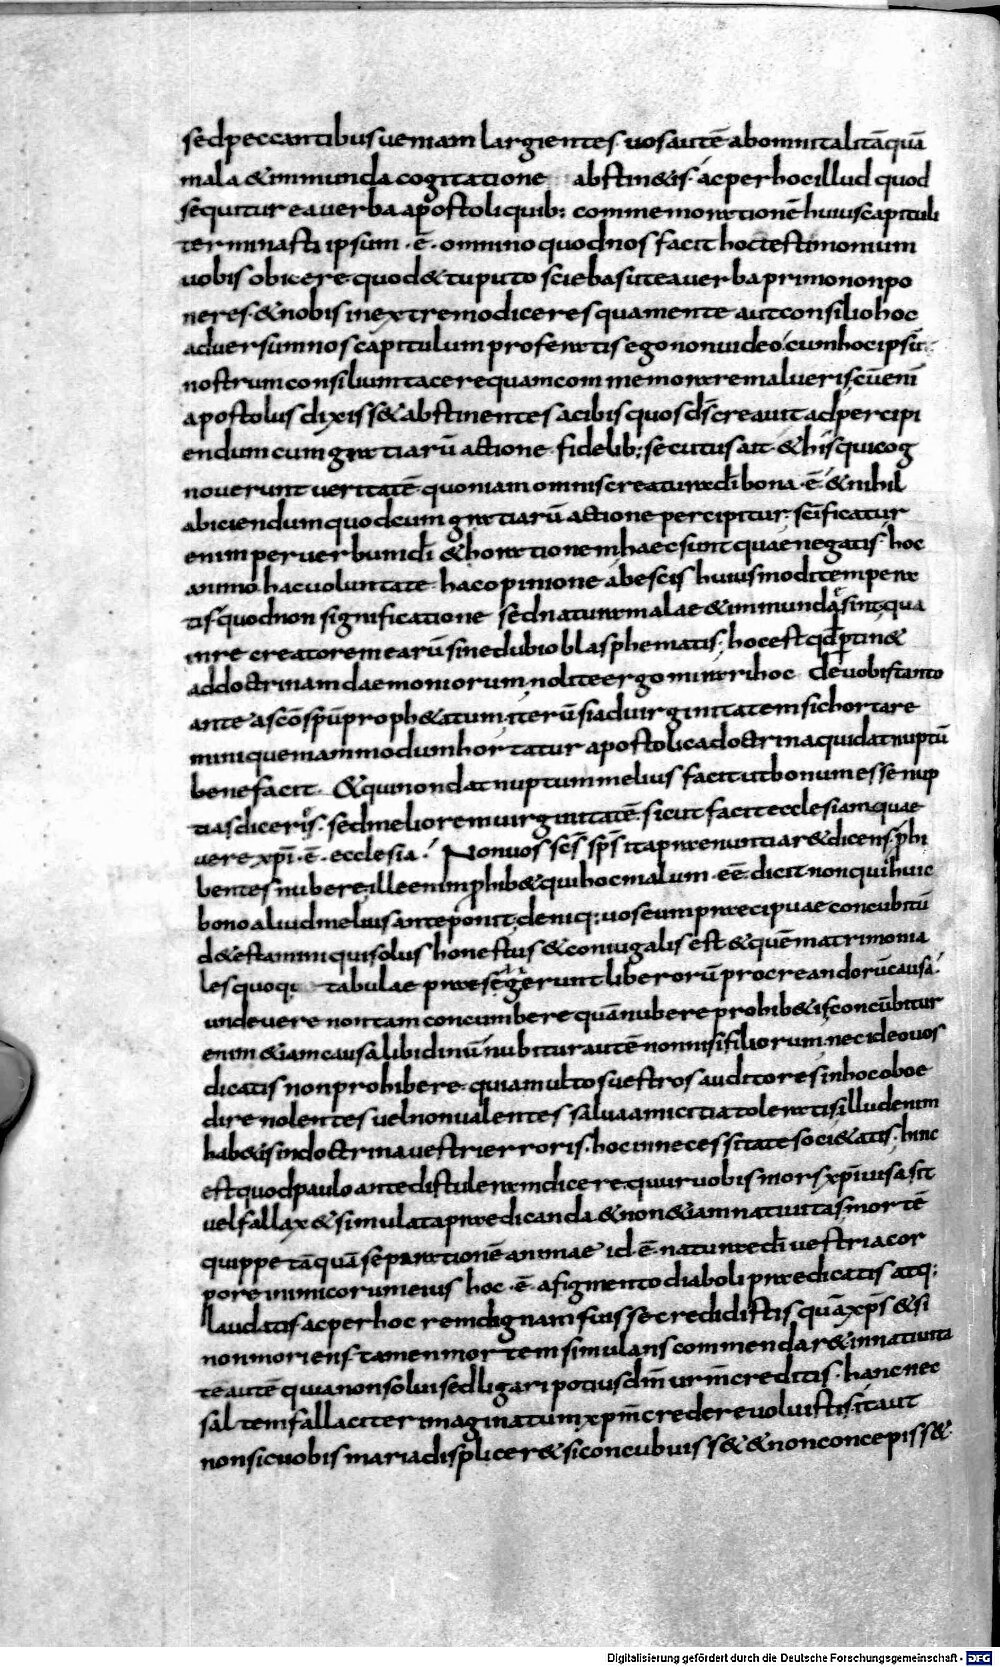 sedpeccantibus ueniam largientes· uos autē abomni talitāquā
mala &inmunda cogitatione abstin&is· acperhoc illud quod
sequitur ea uerba apostoli quib: commemorationē huius capituli
terminasti ipsum ·ē· omnino quod nos facit hoc testimonium
uobis obicere quod &tu puto sciebas ut ea uerba primo nonpo
neres· &nobis inextremo diceres qua mente aut consilio hoc
aduersum nos capitulum proferatis ego non uideo· cum hoc ipsū
nostrum consilium tacere quam commemorare malueris cū enī
apostolus dixiss& abstinentes a cibis quos ds̄ creauit ad percipi
endum cum gratiarū actione fidelib: secutus ait &his qui cog
nouerunt ueritatē quoniam omnis creatura dī bona ·ē· &nihil
abiciendum quod cum gratiarū actione percipitur· scīficatur
enim per uerbum dī &horationem haec sunt quae negatis· hoc
animo hac uoluntate hac opinione ab escis huiusmodi tempera
tis· quod non significatione sed natura malae &inmundae sint qua
in re creatorem earū sine dubio blasphematis· hoc est qd̄ ptin&
ad doctrinam daemoniorum· nolite ergo mirari hoc de uobis tanto
ante a scō spū proph&atum· iterū si ad uirginitatem sic hortare
mini quemammodum hortatur apostolica doctrina qui dat nuptū
bene facit· &qui non dat nuptum melius facit ut bonum esse nup
tias dicer&is· sed meliorem uirginitatē· sicut facit ecclesiam quae
uere xp̄i ·ē· ecclesia· Non uos scs̄ sps̄ ita praenuntiar& dicens· phi
bentes nubere· ille enim phib& qui hoc malum ·eē· dicit non qui huic
bono aliud melius anteponit· deniq: uos eum praecipuae concubitū
d&estamini qui solus honestus &coniugalis est &quē matrimonia
les quoque tabulae prae se gerunt liberorū procreandorū causa·
unde uere non tam concumbere quā nubere prohib&is· concūbitur
enim &iam causa libidinū nubitur autē non nisi filiorum· nec ideo uos
dicatis non prohibere· quia multos uestros auditores in hoc oboe
dire nolentes uel non ualentes salua amicitia toleratis· illud enim
hab&is in doctrina uestri erroris· hoc in necessitate soci&atis· hinc
est quod paulo ante distuleram dicere quur uobis mors xp̄i uisa sit
uel fallax &simulata praedicanda &non &iam natiuitas· mortē
quippe tāquā separationē animae id ·ē· naturae dī uestri a cor
pore inimicorum eius hoc ·ē· a figmento diaboli praedicatis atq:
laudatis ac per hoc rem dignam fuisse credidistis quā xps̄ &si
non moriens tamen mortem simulans commendar& in natiuita
tē autē quia non solui sed ligari potius dm̄ urm̄ creditis· hanc nec
saltem fallaciter imaginatum xpm̄ credere uoluistis· ita ut
non sic uobis maria displicer& si concubuiss& &non concepiss&·
Digitalisierung gefördert durch die Deutsche Forschungsgemeinschaft - DFG